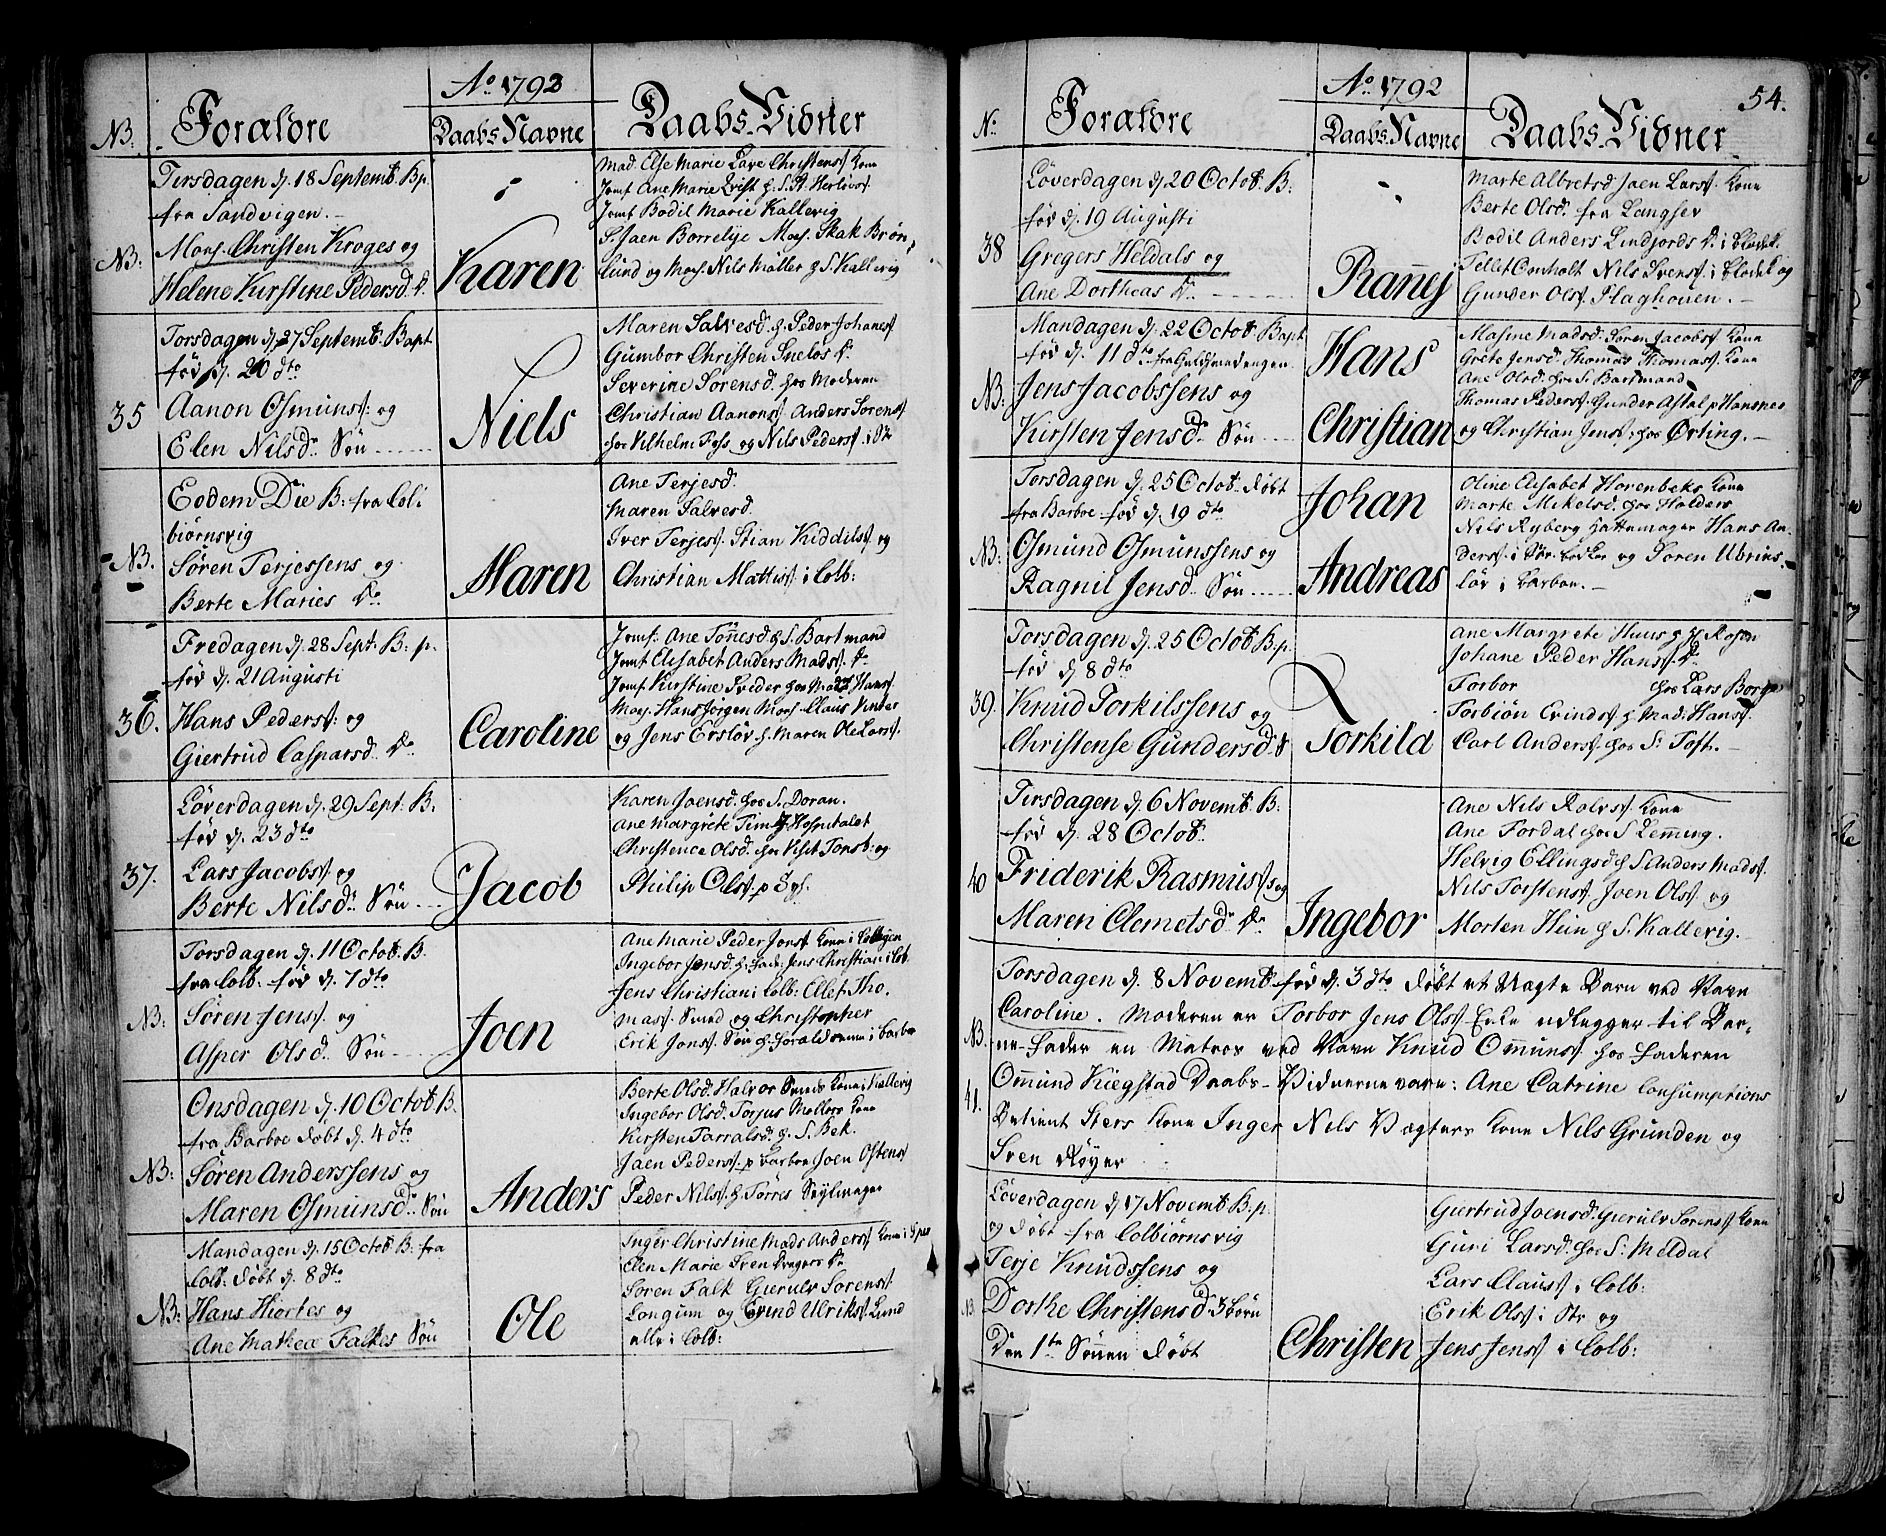 Ao 1792
NB. Forældre Daabs Navne Daabs-Vidner
Tirsdagen d. 18 Septemb. B.p.
fra Sandvigen.
NB: Mons. Christen Kroges og
Helene Kirstine Pedersd. Dr.
Karen
Mad. Else Marie Christens Kone
Jomf. Ane Marie Qvist h. S.
Jomf Bodil Marie Kallevig
S. Jaen Borrelye Mons. Skak Brøn-
lund og Mons. Nils Møller h S. Kallevig
Torsdagen d. 27 Septemb. Bapt
fød d. 20 dto
35 Aanon Osmuns. og
Elen Nilsd. Søn
Niels
Maren Salvesd. h. Peder Johanes
Gumbor Christen Sneløs Dr.
Severine Sørensd. hos Moderen
Christian Aanons. Anders Sørens
hos Vilhelm Foss og Nils Peders. i
Eodem Die B: fra Col-
biørnsvig
NB. Søren Terjessens og
Berte Maries Dr
Maren
Ane Terjesd.
Maren Salvesd.
Iver Terjess. Stian Kiddils og
Christian Mattiss i Colb:
Fredagen d. 28 Sept. B. p.
fød d. 21 Augusti
36. Hans Peders. og
Giertrud Caspersd. Dr
Caroline
Jomf. Ane Tønnesd. h S. Bartmand
Jomf Elisabet Anders Mads. Dr
Jomf. Kirstine Sveder hos Mad. Hans
Mons. Hans Jørgen Mons. Claus Vinter
og Jens Ersløv h. Maren Ole Lars.
Løverdagen d. 29 Sept: B.
fød d. 23 dto
37. Lars Jacobs. og
Berte Nilsd. Søn
Jacob
Karen Joensd. hos S. Doran.
Ane Margrete Hospitalet
Christence Olsd. hos og
Philip Ols. p
Torsdagen d. 11 Octob. B.
fra Colb: fød d. 7 dto
NB: Søren Jens. og
Asper Olsd. Søn
Joen
Ane Marie Peder Jons. Kone i
Ingebor Jensd. h. Jens Christian i Colb
Jens Christian i Colb: Ellef Tho-
mas. Smed og Christopher
Erik Jons. Søn i Barboe
Onsdagen d. 10 Octob. B.
fra Barboe døbt d. 4 dto
NB: Søren Anderssens og
Maren Osmunsd. Søn
Anders
Berte Olsd. Halvor Smeds Kone i Kallevig
Ingebor Olsd. Torjus Møllers Kone
Kirsten Tarralsd. h. S. Bek.
Jaen Peders. p Barboe Joen Ostens
Peder Nils. h. Tørres Seylmager
Mandagen d. 15 Octob. B. fra
Colb. døbt d. 8 dto
NB: Hans Hiortes og
Ane Mathea Falkes Søn
Ole
Inger Christine Mads Anders. Kone i
Elen Marie Sven Dr
Søren Falk Gierulv Sørens.
Longum og Evind Ulriks. Lund
alle i Colb:
Ao 1792 54.
No. Forældre Daabs-Navne Daabs-Vidner
Løverdagen d. 20 Octob. B:
fød d. 19 Augusti
38 Gregers Heldals og
Ane Dortheas Dr.
Rannej
Marte Albretsd. Jaen Lars. Kone
Berte Olsd. fra Langsev
Bodil Anders Lindjords Dr. i Blødek.
Tellef Omholt Nils Svens. i Blødek. og
Gunder Ols. Flaghouen.
Mandagen d. 22 Octob. Bapt
fød d. 11 dto fra Guldsmedengen.
NB. Jens Jacobssens og
Kirsten Jensd. Søn
Hans
Christian
Masine Madsd. Søren Jacobs. Kone
Grete Jensd. Thomas Thomas. Kone
Ane Olsd. hos S. Bartmand
Thomas Peders. Gunder Astal p Hansnes
og Christian Jens. hos Ørting.
Torsdagen d. 25 Octob. døbt
fra Barboe fød d. 19 dto
NB. Osmund Osmunssens og
Ragnil Jensd. Søn
Johan
Andreas
Oline Elisabet Horenbeks Kone
Marte Mikelsd. hos Holders
Nils Ryberg Hattemager Hans An-
ders. i og Søren Ubrius-
løv i Barboe.
Torsdagen d. 25 Octob B.p.
fød d. 8 dto
39. Knud Torkilssens og
Christense Gundersd. S
Torkild
Ane Margrete Huus h
Johane Peder Hans. Dr.
Torbor hos Lars
Torbiøn Evinds. h. Mad. Hans.
Carl Anders. hos S. Toft.
Tirsdagen d. 6 Novemb. B:
fød d. 28 Octob.
40 Friderik Rasmus. og
Maren Clemetsd. Dr
Ingebor
Ane Nils Rolvs. Kone
Ane Fordal hos S. Lemming.
Helvig Ellingsd. h S. Anders Mads.
Nils Torstens. Joen Ols. og
Morten Hein h S. Kallevig.
Torsdagen d. 8 Novemb. fød d. 3 dto døbt et Uægte Barn ved Navn
Caroline. Moderen er Torbor Jens Ols. Enke udlegger til Bar-
NB. ne-Fader en Matros ved Navn Knud Ommuns. hos Faderen
41. Ommund Kiegstad Daabs-Vidnerne vare: Ane Catrine Consumptions
Betient Sters Kone Inger Nils Vægters Kone Nils Grunden og
Sven Røyer
Løverdagen d. 17 Novemb. B.p.
og døbt fra Colbiørnsvig
Terje Knudssens og
NB Dorthe Christensd. Børn
Den 1te Sønnen døbt
Christen
Giertrud Joensd. Gierulv Sørens. Kone
Guri Larsd. hos S. Meldal
Lars Claus. i Colb:
Erik Ols. i og
Jens Jens. i Colb: